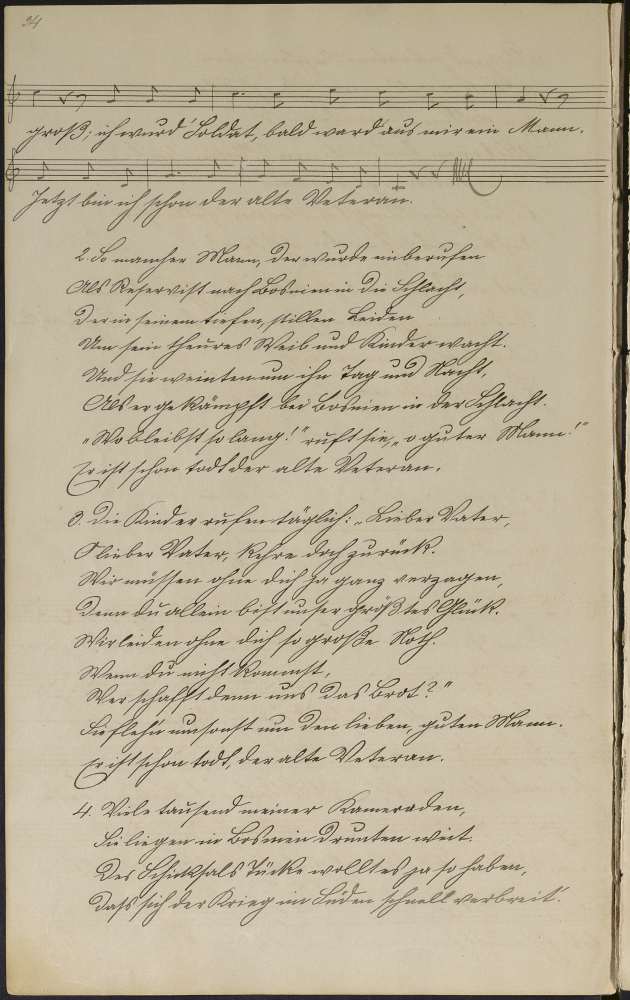 34
groß; ich wurd' Soldat, bald ward aus mir ein Mann.
Jetzt bin ich schon der alte Veteran.
2. So mancher Mann, der wurde einberufen
Als Reservist nach Bosnien in die Schlacht,
Der in seinem tiefen, stillen Leiden
Um sein theures Weib und Kinder wacht.
Und sie weinten um ihn Tag und Nacht,
Als er gekämpft bei Bosnien in der Schlacht.
"Wo bleibst so lang!" ruft sie, "o guter Mann!"
Er ist schon todt der alte Veteran.
3. Die Kinder rufen täglich: "Lieber Vater,
O lieber Vater, kehre doch zurück.
Wir müssen ohne dich ja ganz verzagen,
Denn du allein bist unser größtes Glück.
Wir leiden ohne dich so große Noth.
Wenn du nicht kommst,
Wer schafft denn uns das Brot?"
Sie fleh'n umsonst um den lieben, guten Mann.
Er ist schon todt, der alte Veteran.
4. Viele tausend meiner Kameraden,
Sie liegen in Bosnien drunten weit.
Des Schicksals Tücke wollt es ja so haben,
Dass sich der Krieg im Süden schnell verbreit'.